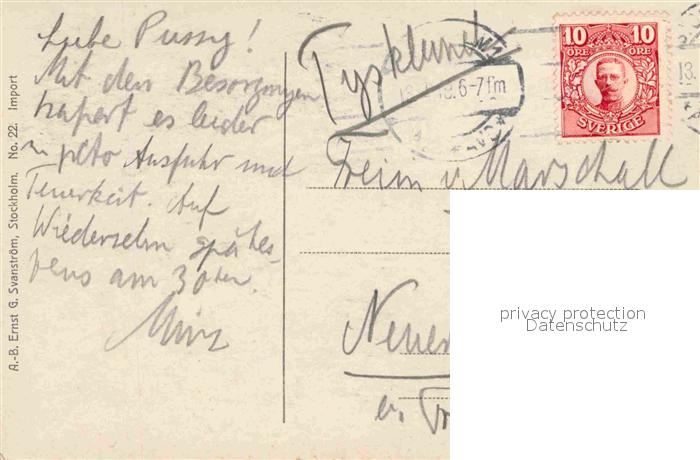 Liebe Pussy!
Mit den Besorgungen
hapert es leider
in pcto Ausfuhr und
Teuerkeit. Auf
Wiedersehn spätes-
tens am 30ten.
Tyskland
Freim v. Marschall
6-7 fm
10 10
ÖRE ÖRE
SVERIGE
A.-B. Ernst G. Svanström, Stockholm. No. 22. Import
privacy protection
Datenschutz